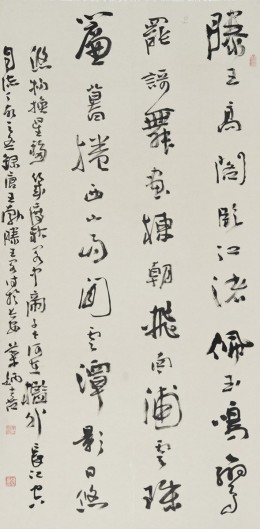 滕王高閣臨江渚佩玉鳴鸞
罷謌舞畫棟朝飛南浦雲珠
簾暮捲西山雨閒雲潭影日悠
悠物換星移幾度秋閣中帝子今何在檻外長江空
自流 錄唐王勃滕王閣詩於 葉炳喜